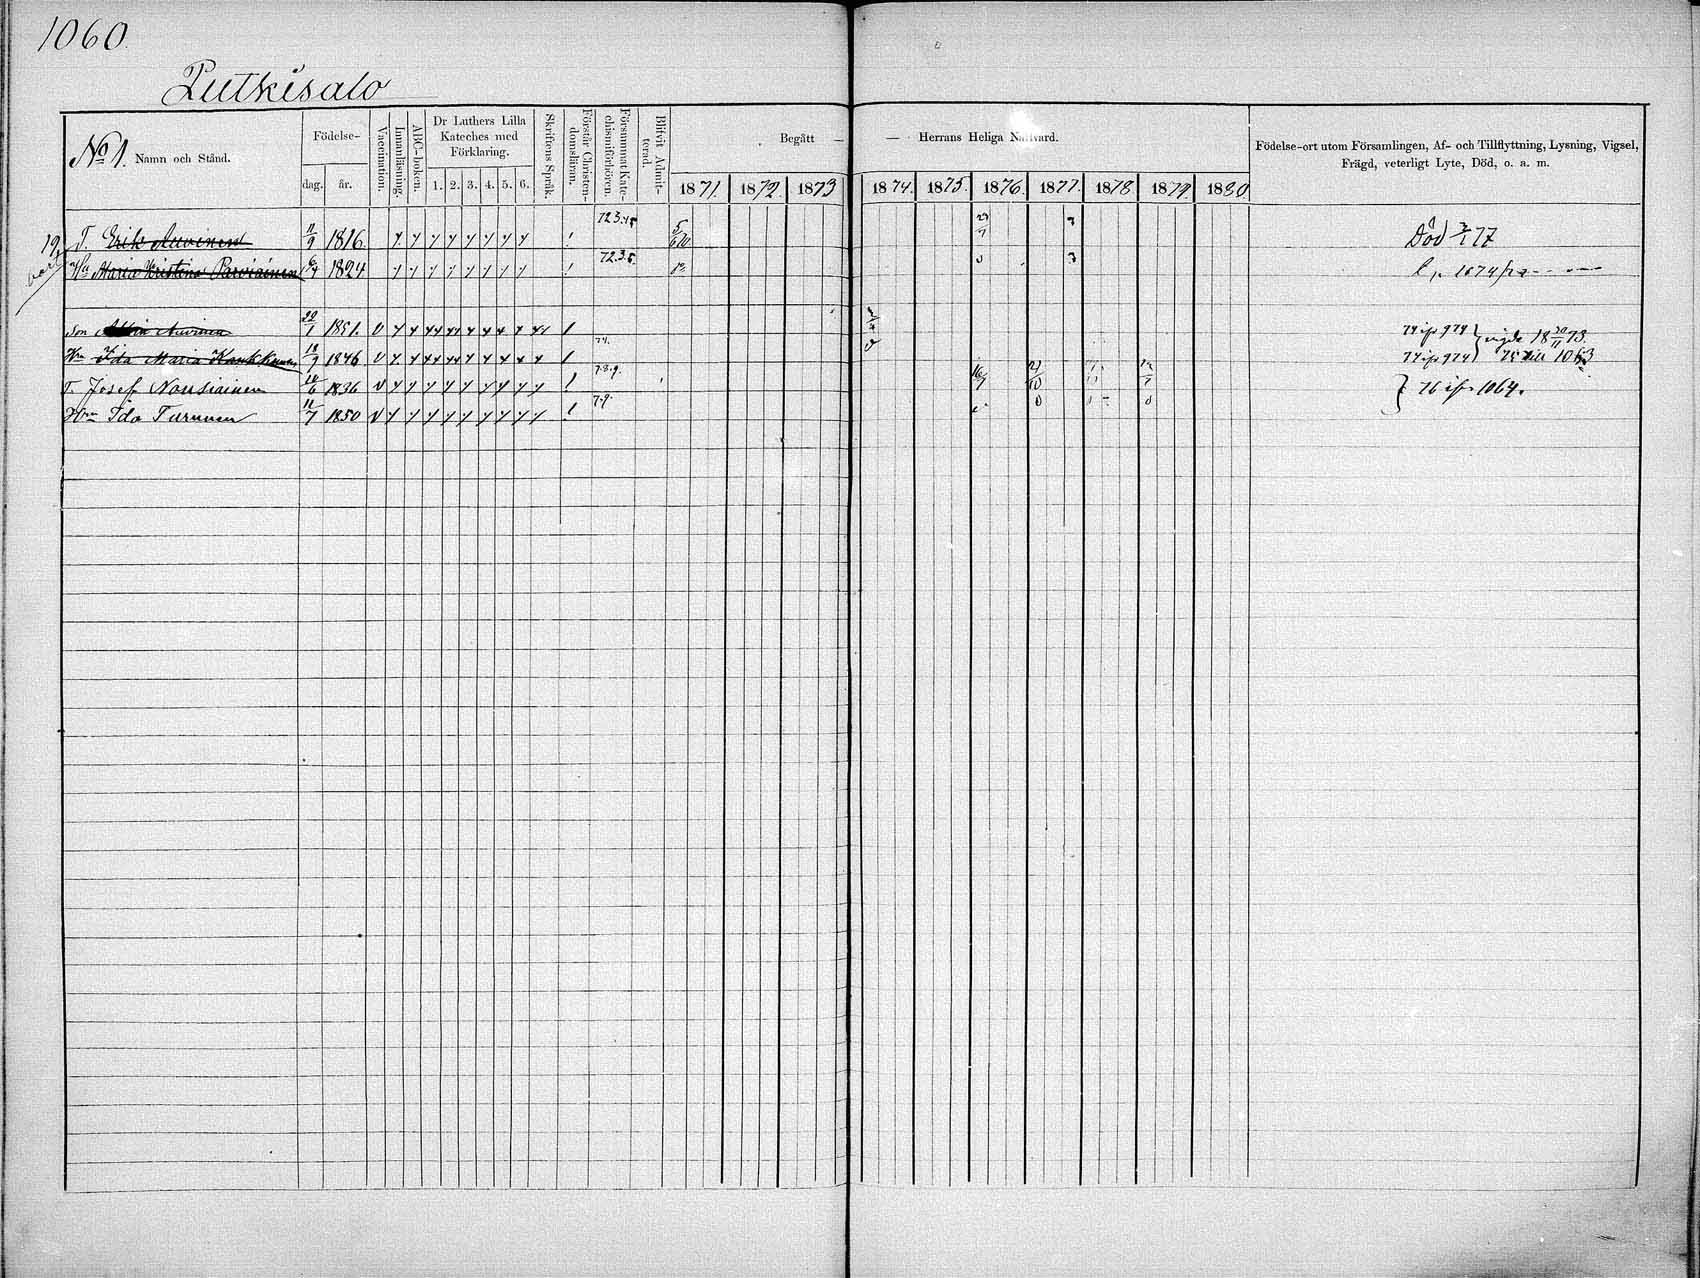 1060.
Putkisalo
No 1. Namn och Stånd.
Födelse-
dag. år.
Vaccination.
Innanläsning.
ABC-boken.
Dr Luthers Lilla Kateches med Förklaring.
1. 2. 3. 4. 5. 6.
Skriftens Språk.
Förstår Christendomsläran.
Försummat Katechismiförhören.
Blifvit Admitterad.
Begått — — Herrans Heliga Nattvard.
1871. 1872. 1873 1874. 1875. 1876. 1877. 1878 1879. 1880
Födelse-ort utom Församlingen, Af- och Tillflyttning, Lysning, Vigsel,
Frägd, veterligt Lyte, Död, o. a. m.
T. Erik Auvinen 11/9 1816. 72.3.4.5 Död 3/1 77
Hu Maria Kristina Parviainen 1824 72.3.5.
Son Albin Auvinen 22/1 1851. v 74 ifr 974 vigde 18 20/11 73.
Hm Ida Maria Kaukkunen 18/9 1846 v 74. 74 ifr 974 75 till 1063
T. Josef Nousiainen 10/6 1836 v 7.8.9. 76 ifr 1064.
Hm Ida Turunen 11/7 1850 v 7.9.